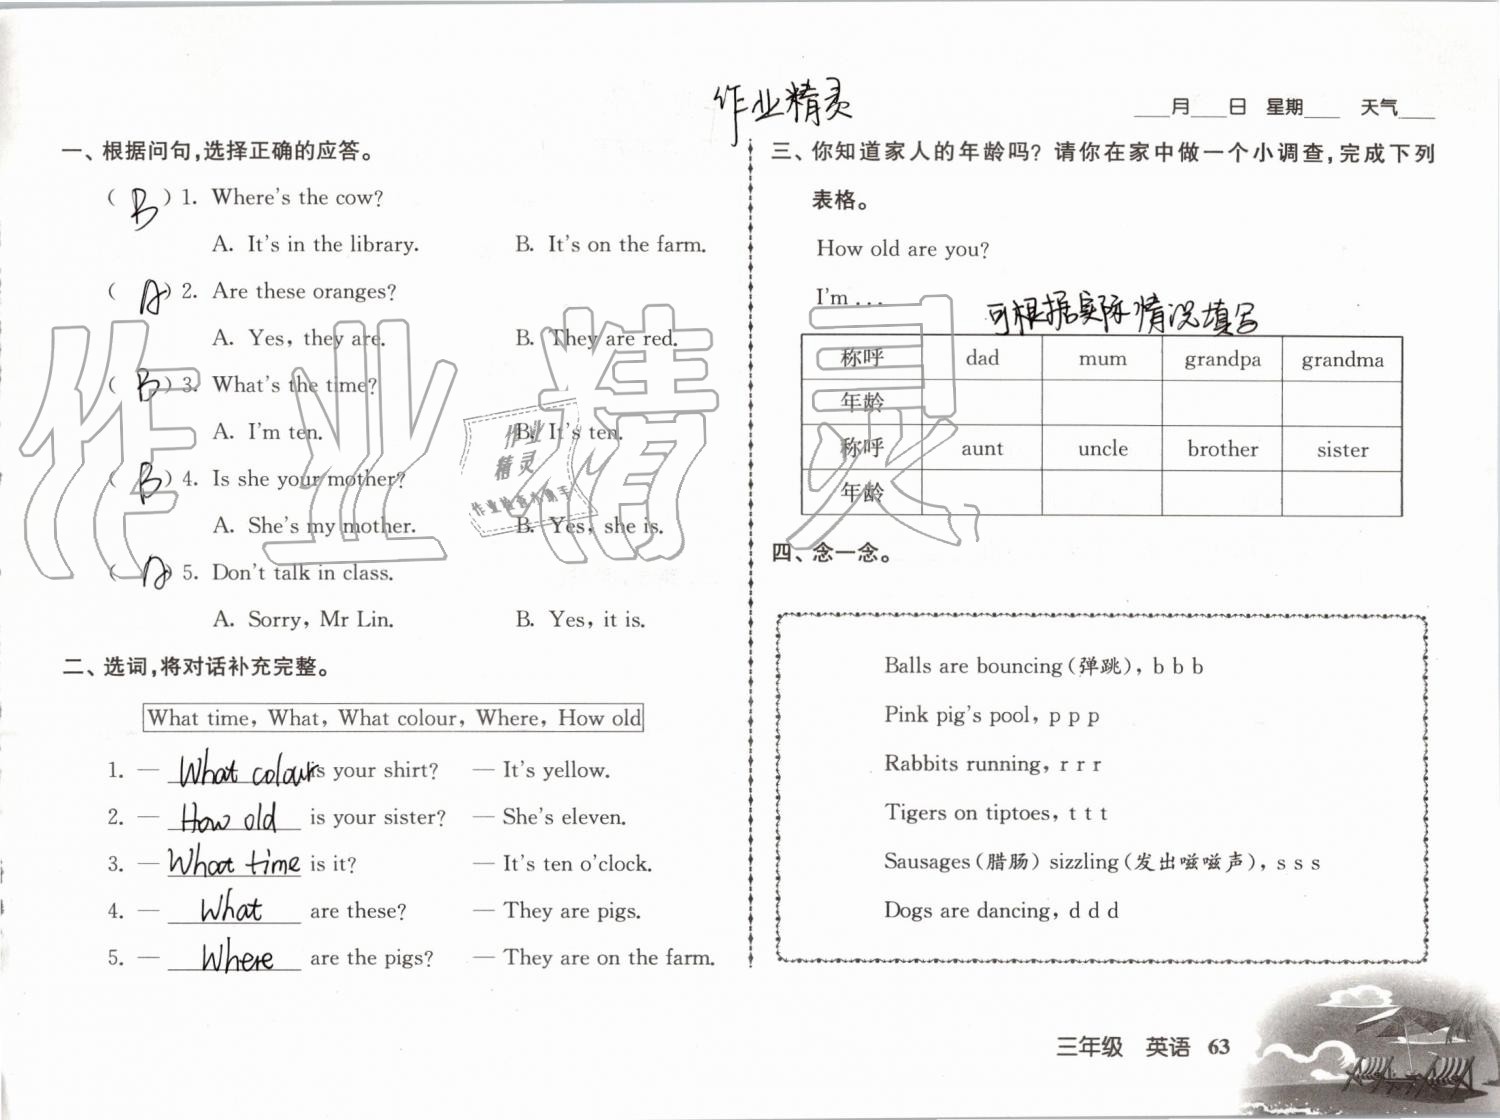 作业精灵
月 日 星期 天气
一、根据问句,选择正确的应答。
( B ) 1. Where's the cow?
A. It's in the library. B. It's on the farm.
( A ) 2. Are these oranges?
A. Yes, they are. B. They are red.
( B ) 3. What's the time?
A. I'm ten. B. It's ten.
( B ) 4. Is she your mother?
A. She's my mother. B. Yes, she is.
( A ) 5. Don't talk in class.
A. Sorry, Mr Lin. B. Yes, it is.
二、选词,将对话补充完整。
What time, What, What colour, Where, How old
1. — What colour is your shirt? — It's yellow.
2. — How old is your sister? — She's eleven.
3. — What time is it? — It's ten o'clock.
4. — What are these? — They are pigs.
5. — Where are the pigs? — They are on the farm.
三、你知道家人的年龄吗? 请你在家中做一个小调查,完成下列
表格。
How old are you?
I'm ...
可根据实际情况填写
称呼 dad mum grandpa grandma
年龄
称呼 aunt uncle brother sister
年龄
四、念一念。
Balls are bouncing(弹跳), b b b
Pink pig's pool, p p p
Rabbits running, r r r
Tigers on tiptoes, t t t
Sausages(腊肠) sizzling(发出嗞嗞声), s s s
Dogs are dancing, d d d
三年级 英语 63
作业精灵
作业
精灵